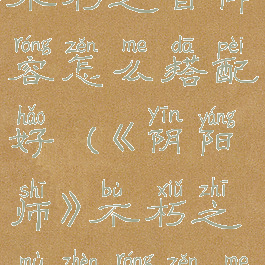 róng zěn me dā pèi
容怎么搭配
hǎo yīn yáng
好（《阴阳
shī bù xiǔ zhī
师》不朽之
mù zhèn róng zěn me